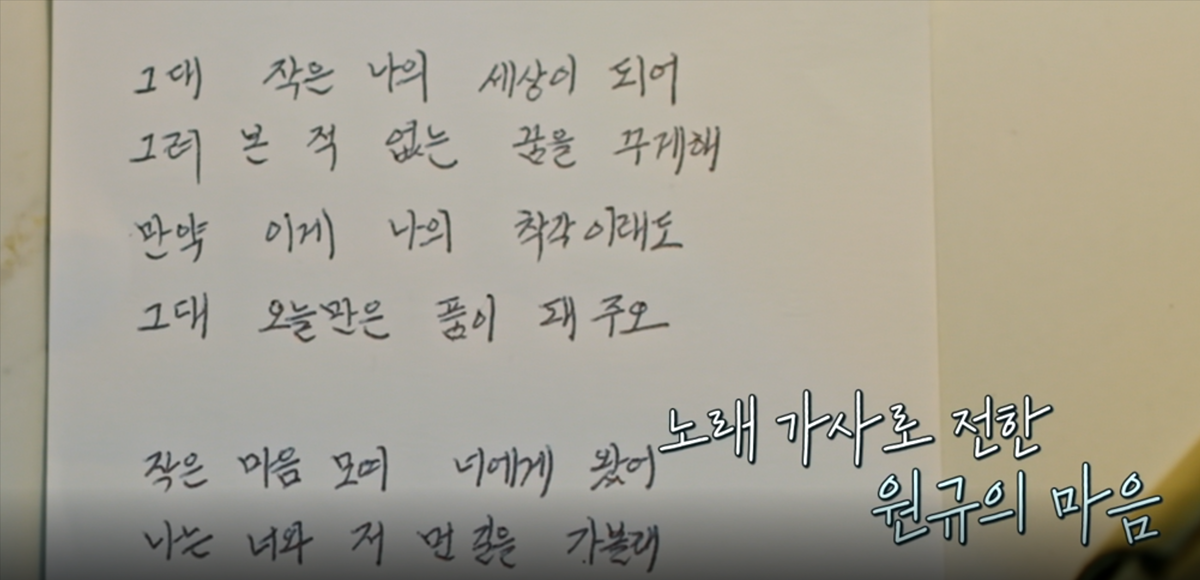 그대 작은 나의 세상이 되어
그려 본 적 없는 꿈을 꾸게해
만약 이게 나의 착각이래도
그대 오늘만은 품이 돼 주오
작은 마음 모여 너에게 왔어
나는 너와 저 먼 길을 가볼래
노래 가사로 전한
원규의 마음